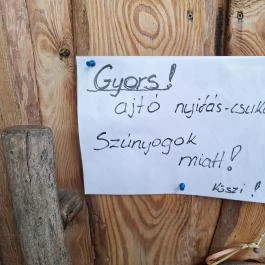 Gyors!
ajtó nyitás-csuká
Szúnyogok
miatt!
Köszi!